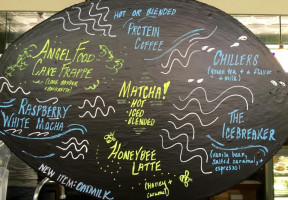 HOT OR BLENDED
PROTEIN
COFFEE
ANGEL FOOD
CAKE FRAPPE
CHILLERS
(green tea + a flavor
+ milk)
MATCHA!
HOT
ICED
BLENDED
RASPBERRY
WHITE MOCHA
THE
ICEBREAKER
(vanilla bean,
salted caramel, +
espresso)
HONEYBEE
LATTE
(Honey +
caramel)
NEW ITEM: OATMILK